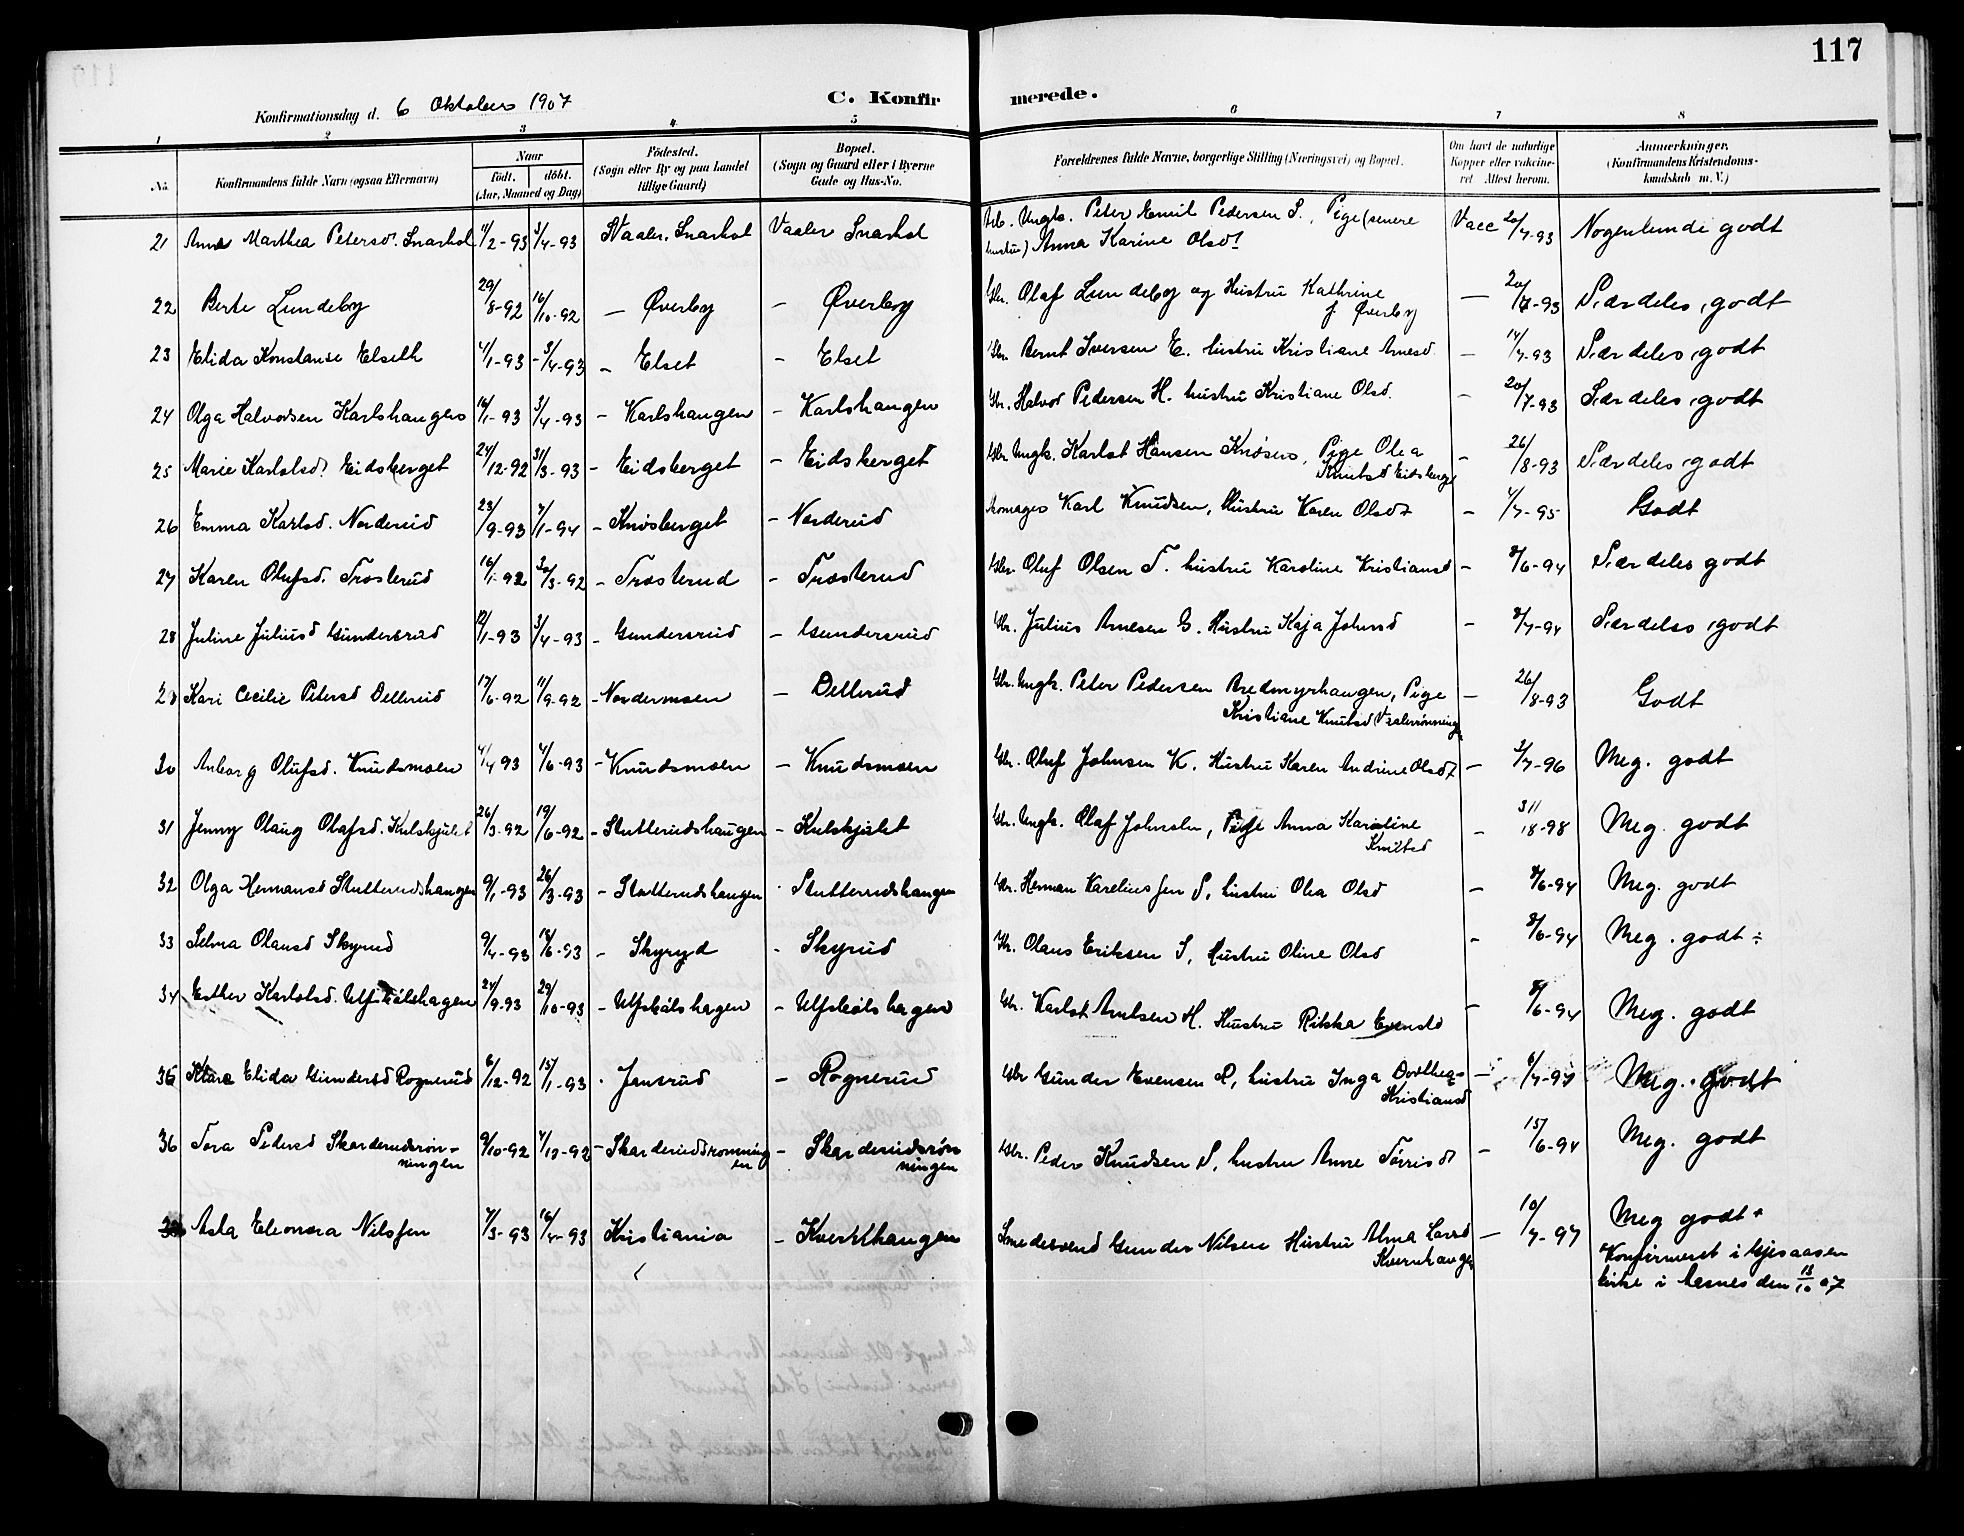 117
Konfirmationsdag d. 6 Oktober 1907 C. Konfirmerede.
1 2 3 4 5 6 7 8
No. Konfirmandens fulde Navn (ogsaa Efternavn) Naar født. døbt. (Aar, Maaned og Dag) Fødested. (Sogn eller By og paa Landet tillige Gaard) Bopæl. (Sogn og Gaard eller i Byerne Gade og Hus-No. Forældrenes fulde Navne, borgerlige Stilling (Næringsvei) og Bopæl. Om havt de naturlige Kopper eller vaccineret Attest herom. Anmerkninger. (Konfirmandens Kristendomskundskab m. V.)
21 Anna Marthea Petersd. Snarhol 4/2-93 3/4-93 Vaaler, Snarhol Vaaler Snarhol Arb. Ungk. Peter Emil Pedersen S., Pige (senere
hustru) Anna Karine Olsd. Vacc 20/7-93 Nogenlunde godt
22 Berte Lundeby 29/8-92 16/10-92 — Øverby — Øverby Gbr. Olaf Lundeby og Hustru Kathrine
f. Øverby — 20/7-93 Særdeles godt
23 Elida Konstanse Elseth 4/1-93 3/4-93 — Elset — Elset Gbr. Bernt Iversen E. hustru Kristiane Arnesd. — 14/7-93 Særdeles godt
24 Olga Halvorsen Karlshaugen 16/1-93 3/4-93 — Karlshaugen — Karlshaugen Gbr. Halvor Pedersen H. hustru Kristiane Olsd. — 20/7-93 Særdeles godt
25 Marie Karlotsd. Eidsberget 24/12-92 31/3-93 — Eidsberget — Eidsberget Gbr. Ungk. Karlot Hansen Knøsen, Pige Olea
Knutsd Eidsberget — 26/8-93 Særdeles godt
26 Emma Karlsd. Norderud 23/9-93 7/1-94 — Knøsberget — Norderud Skomager Karl Knudsen, Hustru Karen Olsdt — 4/7-95 Godt
27 Karen Olufsd. Trosterud 16/1-92 20/3-92 — Trosterud — Trosterud Gbr. Oluf Olsen T. hustru Karoline Kristiansd — 8/6-94 Særdeles godt
28 Juline Juliusd Gundersrud 12/1-93 3/4-93 — Gundersrud — Gundersrud Gbr. Julius Arnesen G. Hustru Kaja Johnsd — 8/7-94 Særdeles godt
29 Kari Cecilie Petersd Dellerud 17/6-92 11/9-92 — Nordermoen — Dellerud Gbr. Ungk. Peter Pedersen Bredmyrhaugen, Pige
Kristiane Knutsd — 26/8-93 Godt
30 Anborg Olufsd. Knudsmoen 4/4 93 4/6-93 — Knudsmoen — Knudsmoen Gbr. Oluf Johnsen K. Hustru Karen Andrine Olsdt — 2/7-96 Meg. godt
31 Jenny Olaug Olafsd. Kulskjulet 26/3-92 19/6-92 — Stutterudshaugen — Kulskjulet Gbr. Ungk. Olaf Johnsen, Pige Anna Karoline
Knutsd — 31/18-98 Meg. godt
32 Olga Hermansd Stutterudshaugen 9/1-93 26/3-93 — Stutterudshaugen — Stutterudshaugen Gbr. Herman Kareliussen S, hustru Olea Olsd — 8/6-94 Meg. godt
33 Selma Olausd Skyrud 9/4-93 18/6-93 — Skyryd — Skyrud Gbr. Olaus Eriksen S, Hustru Oline Olsd — 8/6-94 Meg. godt ÷
34 Esther Karlotsd. Ulfskålshagen 24/9-93 29/10-93 — Ulfskålshagen — Ulfskålshagen Gbr. Karlot Arnesen H. Hustru Rikka Evensd — 8/6-94 Meg. godt
35 Klara Elida Gundersd Rognerud 6/12-92 15/1-93 . Jansrud — Rognerud Gbr Gunder Evensen R, hustru Inga Dorthea
Kristiansd — 6/7-97 Meg. godt
36 Tora Pedersd Skarderudsrøn-
ningen 9/10-92 4/12-92 — Skarderudsrønning
en — Skarderudsrøn
ningen Gbr. Peder Knudsen S, hustru Anne Torrisd — 15/6-94 Meg. godt
Asta Eleonora Nilssen 7/3-93 16/4-93 Kristiania — Kvernhaugen Smedesvend Gunder Nilsen Hustru Alma Larsd
Kvernhaugen — 10/7-97 Meg godt +
Konfirmeret i Gjesaasen
kirke i Aasnes den 13/10 07